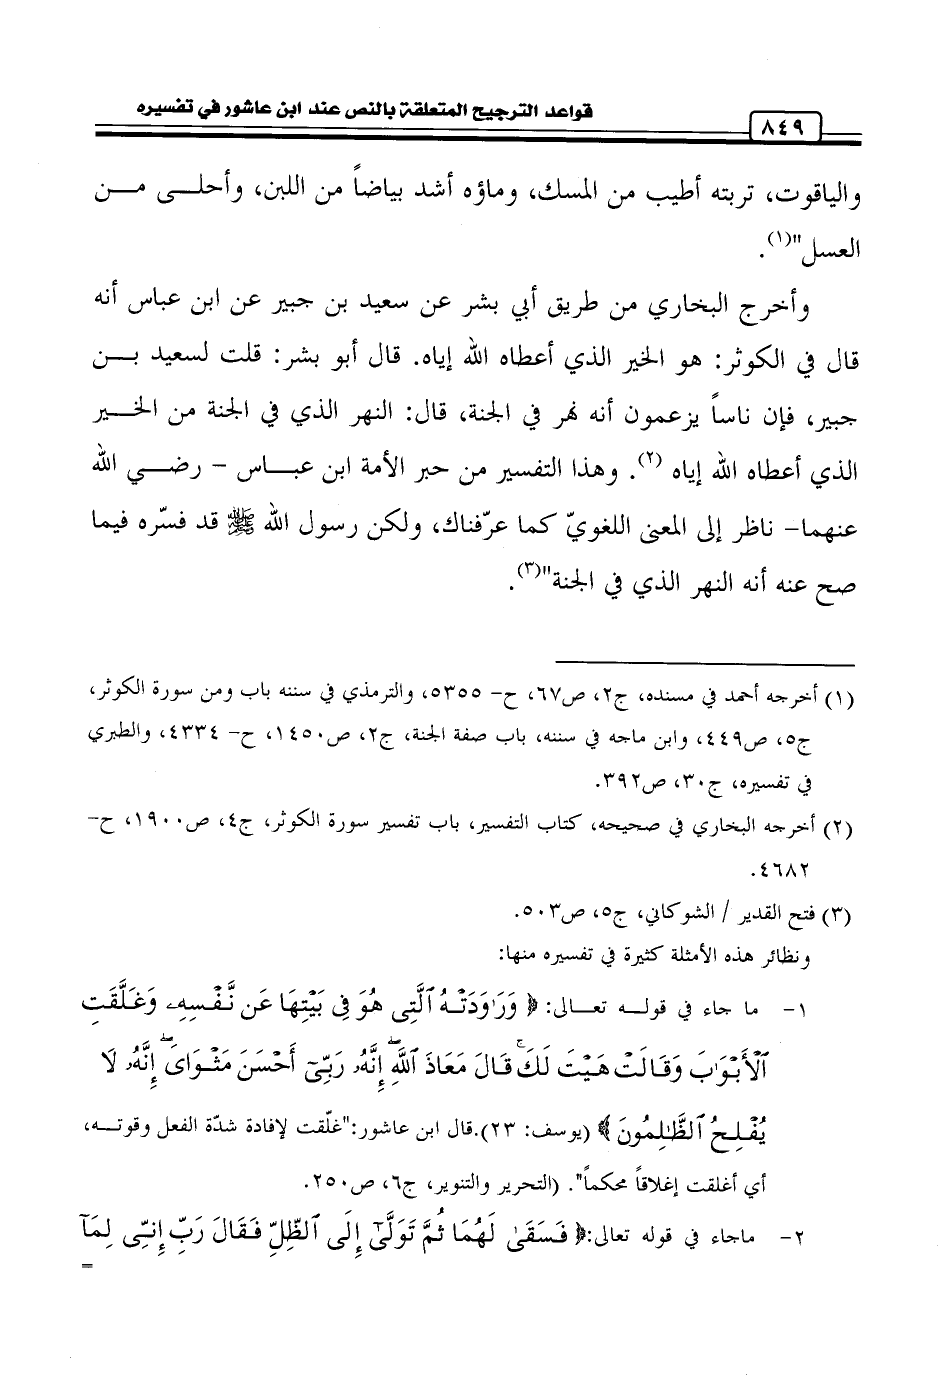 قواعد الترجيح المتعلقة بالنص عند ابن عاشور في تفسيره
٨٤٩
والياقوت، تربته أطيب من المسك، وماؤه أشد بياضاً من اللبن، وأحلى من
العسل"(١).
وأخرج البخاري من طريق أبي بشر عن سعيد بن جبير عن ابن عباس أنه
قال في الكوثر: هو الخير الذي أعطاه الله إياه. قال أبو بشر: قلت لسعيد بن
جبير، فإن ناساً يزعمون أنه نهر في الجنة، قال: النهر الذي في الجنة من الخير
الذي أعطاه الله إياه (٢). وهذا التفسير من حبر الأمة ابن عباس – رضي الله
عنهما– ناظر إلى المعنى اللغويّ كما عرّفناك، ولكن رسول الله ﷺ قد فسّره فيما
صح عنه أنه النهر الذي في الجنة"(٣).
(١) أخرجه أحمد في مسنده، ج٢، ص٦٧، ح– ٥٣٥٥، والترمذي في سننه باب ومن سورة الكوثر،
ج٥، ص٤٤٩، وابن ماجه في سننه، باب صفة الجنة، ج٢، ص١٤٥٠، ح– ٤٣٣٤، والطبري
في تفسيره، ج٣٠، ص٣٩٢.
(٢) أخرجه البخاري في صحيحه، كتاب التفسير، باب تفسير سورة الكوثر، ج٤، ص١٩٠٠، ح–
٤٦٨٢.
(٣) فتح القدير / الشوكاني، ج٥، ص٥٠٣.
ونظائر هذه الأمثلة كثيرة في تفسيره منها:
١– ما جاء في قوله تعالى: ﴿ وَرَٰوَدَتْهُ ٱلَّتِى هُوَ فِى بَيْتِهَا عَن نَّفْسِهِۦ وَغَلَّقَتِ
ٱلْأَبْوَٰبَ وَقَالَتْ هَيْتَ لَكَ ۚ قَالَ مَعَاذَ ٱللَّهِ ۖ إِنَّهُۥ رَبِّىٓ أَحْسَنَ مَثْوَاىَ ۖ إِنَّهُۥ لَا
يُفْلِحُ ٱلظَّٰلِمُونَ ﴾ (يوسف: ٢٣).قال ابن عاشور:"غلّقت لإفادة شدّة الفعل وقوته،
أي أغلقت إغلاقاً محكماً". (التحرير والتنوير، ج٦، ص٢٥٠.
٢– ماجاء في قوله تعالى:﴿ فَسَقَىٰ لَهُمَا ثُمَّ تَوَلَّىٰٓ إِلَى ٱلظِّلِّ فَقَالَ رَبِّ إِنِّى لِمَآ
=